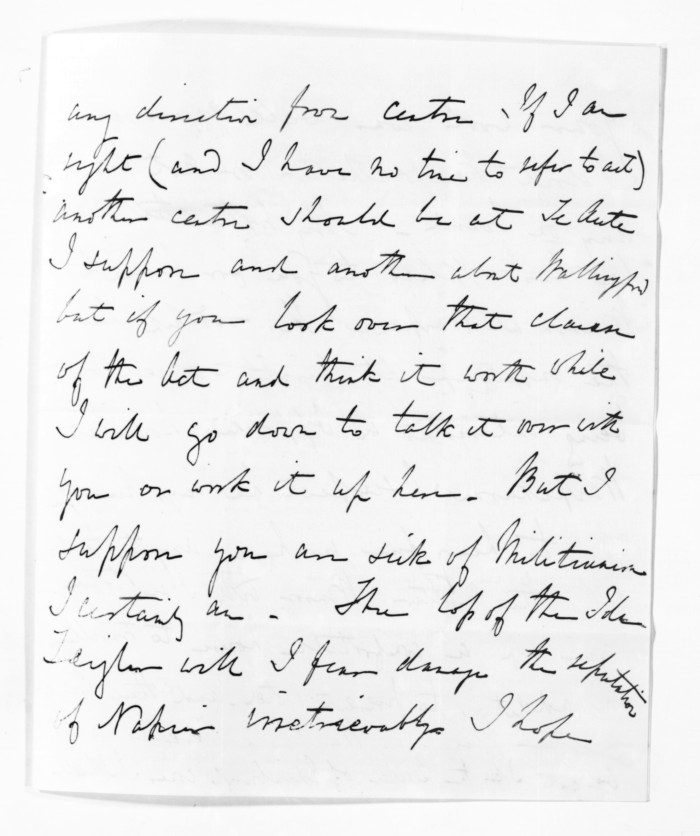 any direction from centre. If I am
right (and I have no time to refer to act)
another centre should be at Te Aute
I suppose and another about Wallingford
but if you look over that clause
of the Act and think it worth while
I will go down to talk it over with
you or work it up here. But I
suppose you are sick of Militiaism
I certainly am. The loss of the Ida
Zeigler will I fear damage the reputation
of Napier irretrievably I hope